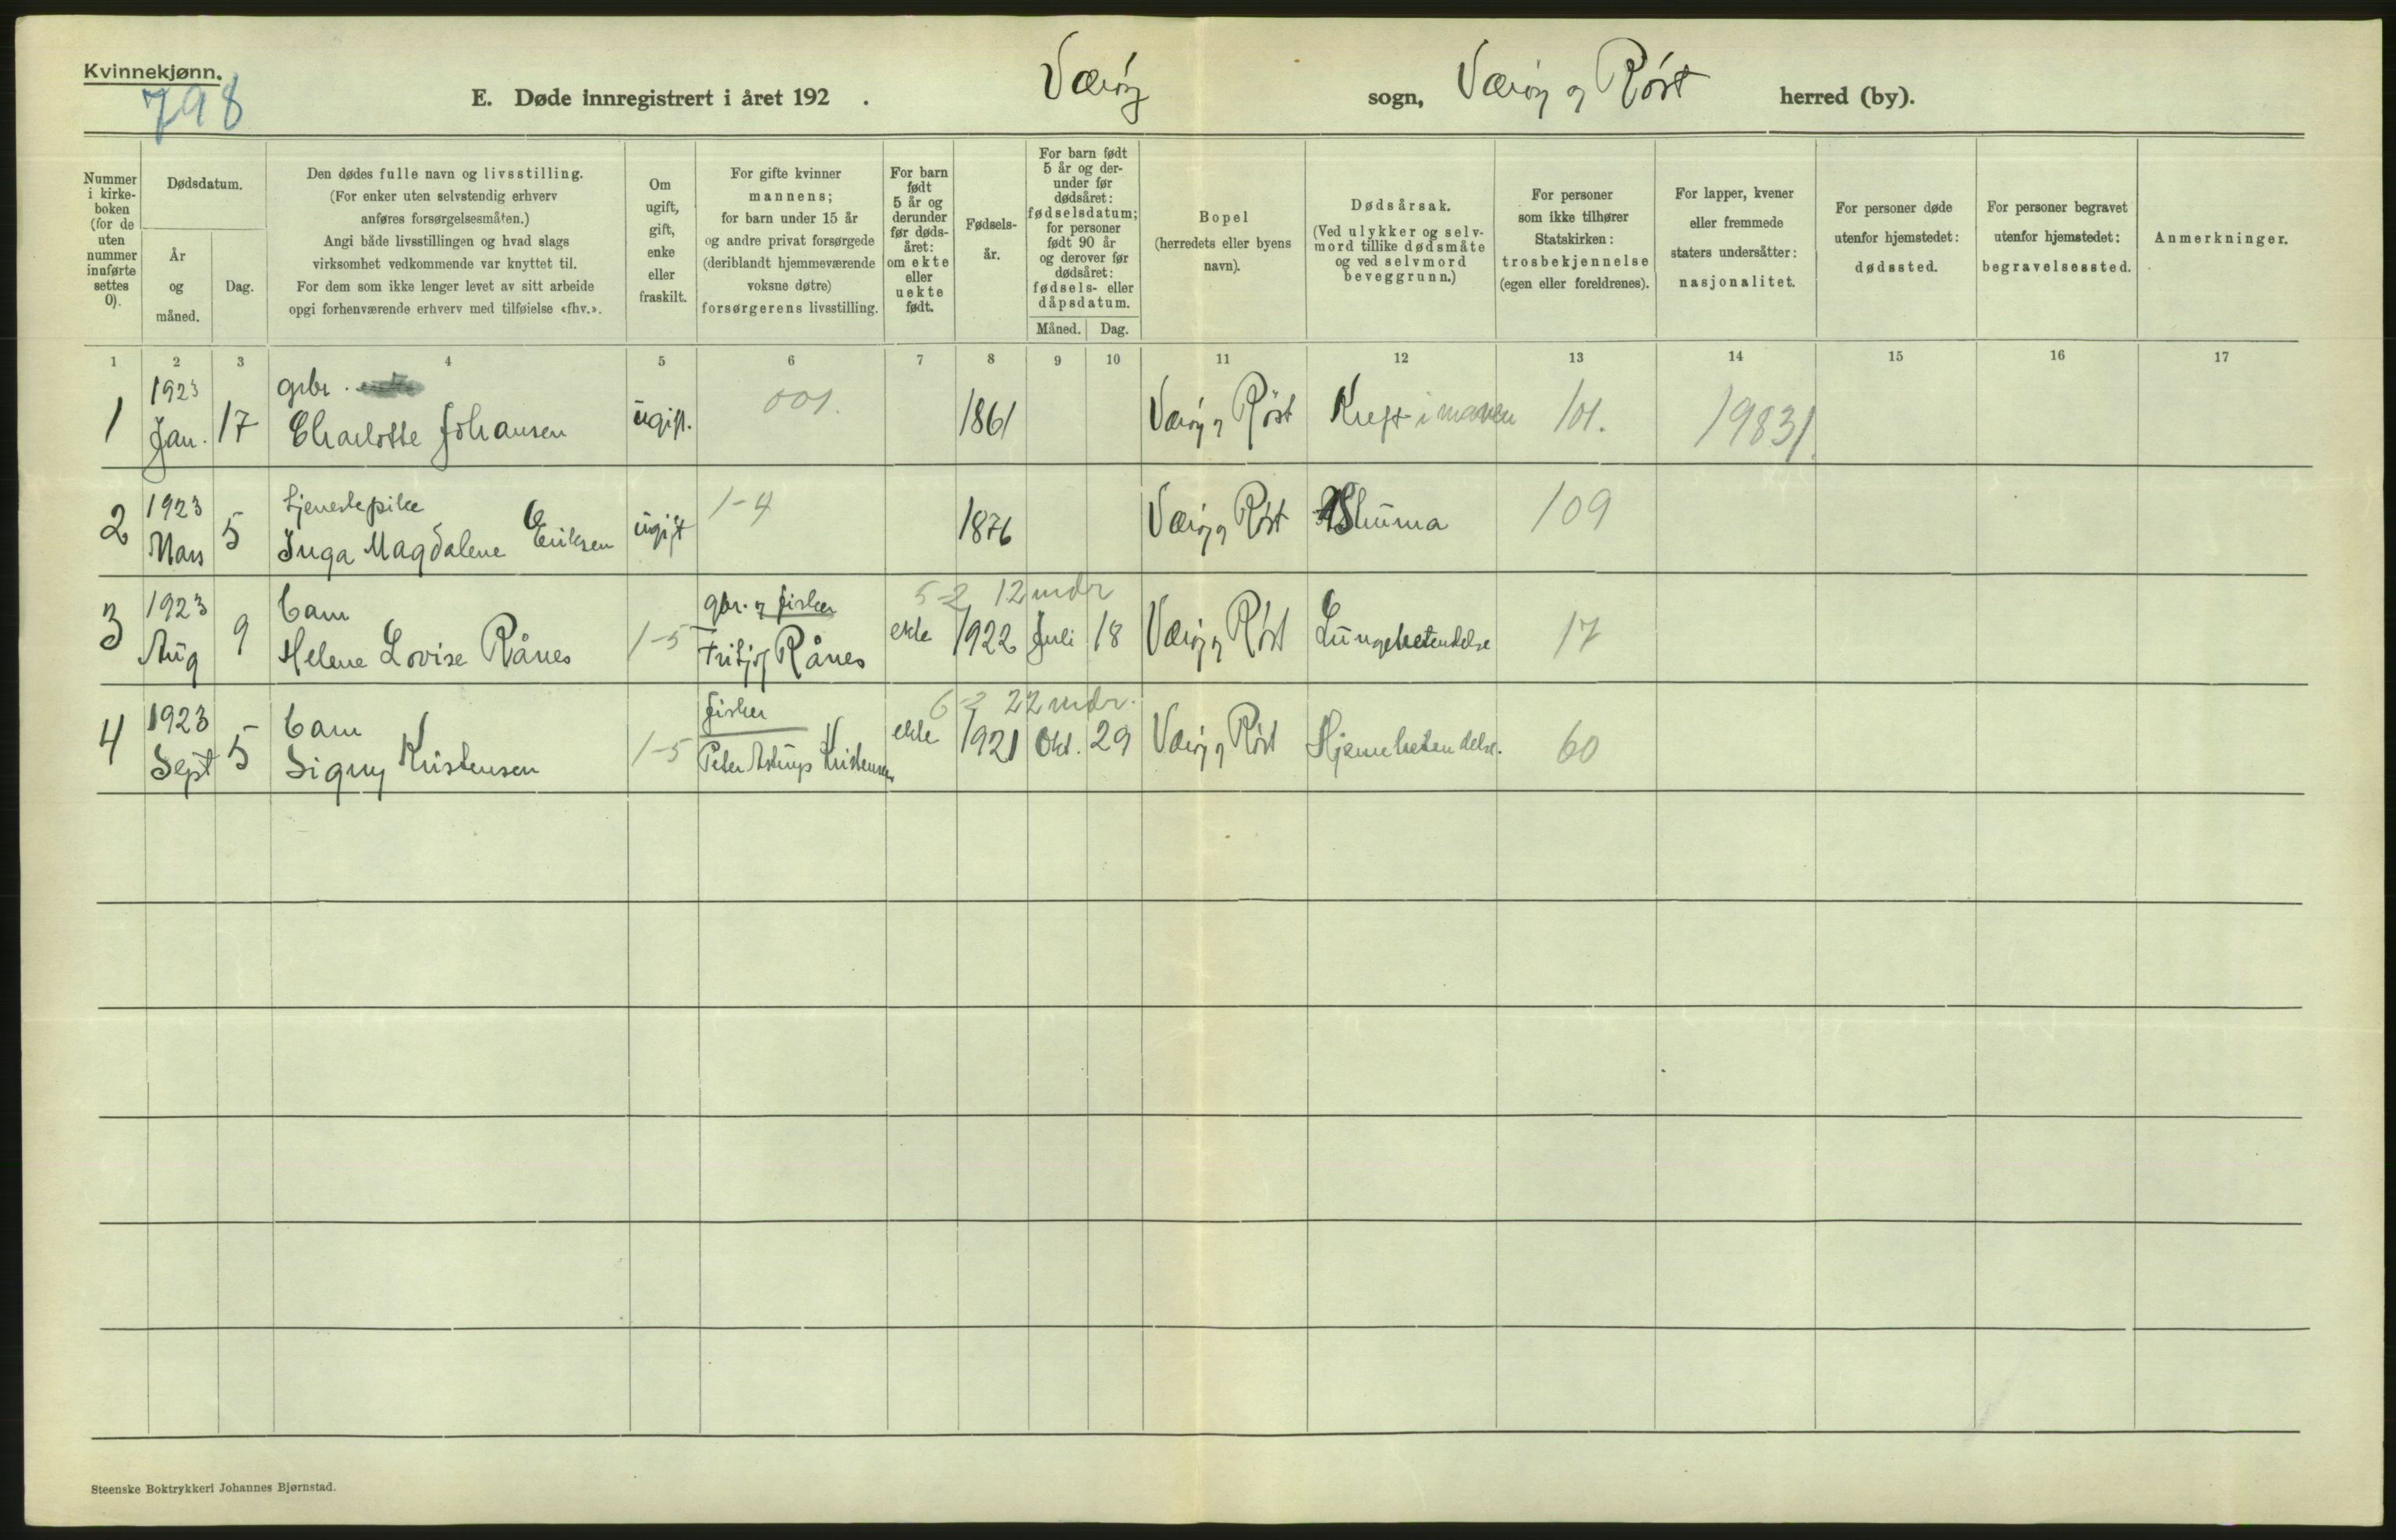 Kvinnekjønn.
798
E. Døde innregistrert i året 192 .
Værøy
sogn,
Værøy og Røst
herred (by).
Nummer
i kirke-
boken
(for de
uten
nummer
innførte
settes
0).
Dødsdatum.
År
og
måned.
Dag.
Den dødes fulle navn og livsstilling.
(For enker uten selvstendig erhverv
anføres forsørgelsesmåten.)
Angi både livsstillingen og hvad slags
virksomhet vedkommende var knyttet til.
For dem som ikke lenger levet av sitt arbeide
opgi forhenværende erhverv med tilføielse «fhv.».
Om
ugift,
gift,
enke
eller
fraskilt.
For gifte kvinner
mannens;
for barn under 15 år
og andre privat forsørgede
(deriblandt hjemmeværende
voksne døtre)
forsørgerens livsstilling.
For barn
født
5 år og
derunder
før døds-
året:
om ekte
eller
uekte
født.
Fødsels-
år.
For barn født
5 år og der-
under før
dødsåret:
fødselsdatum;
for personer
født 90 år
og derover før
dødsåret:
fødsels- eller
dåpsdatum.
Måned.
Dag.
Bopel
(herredets eller byens
navn).
Dødsårsak.
(Ved ulykker og selv-
mord tillike dødsmåte
og ved selvmord
beveggrunn.)
For personer
som ikke tilhører
Statskirken:
trosbekjennelse
(egen eller foreldrenes).
For lapper, kvener
eller fremmede
staters undersåtter:
nasjonalitet.
For personer døde
utenfor hjemstedet:
dødssted.
For personer begravet
utenfor hjemstedet:
begravelsessted.
Anmerkninger.
1 2 3 4 5 6 7 8 9 10 11 12 13 14 15 16 17
1
1923
Jan.
17
grbr.
Charlotte Johansen
ugift.
001.
1861
Værøy og Røst
Kreft i maven
101.
19831.
2
1923
Mars
5
tjenestepike
Inga Magdalene Eriksen
ugift
1-4
1876
Værøy og Røst
Struma
109
3
1923
Aug
9
barn
Helene Lovise Rånes
1-5
gbr. og fisker
Fritjof Rånes
5-2 12 mdr
ekte
1922
Juli
18
Værøy og Røst
Lungebetendelse
17
4
1923
Sept
5
barn
Signy Kristensen
1-5
fisker
Peter Astrup Kristensen
6-2 22 mdr.
ekte
1921
Okt.
29
Værøy og Røst
Hjernebetendelse.
60
Steenske Boktrykkeri Johannes Bjørnstad.